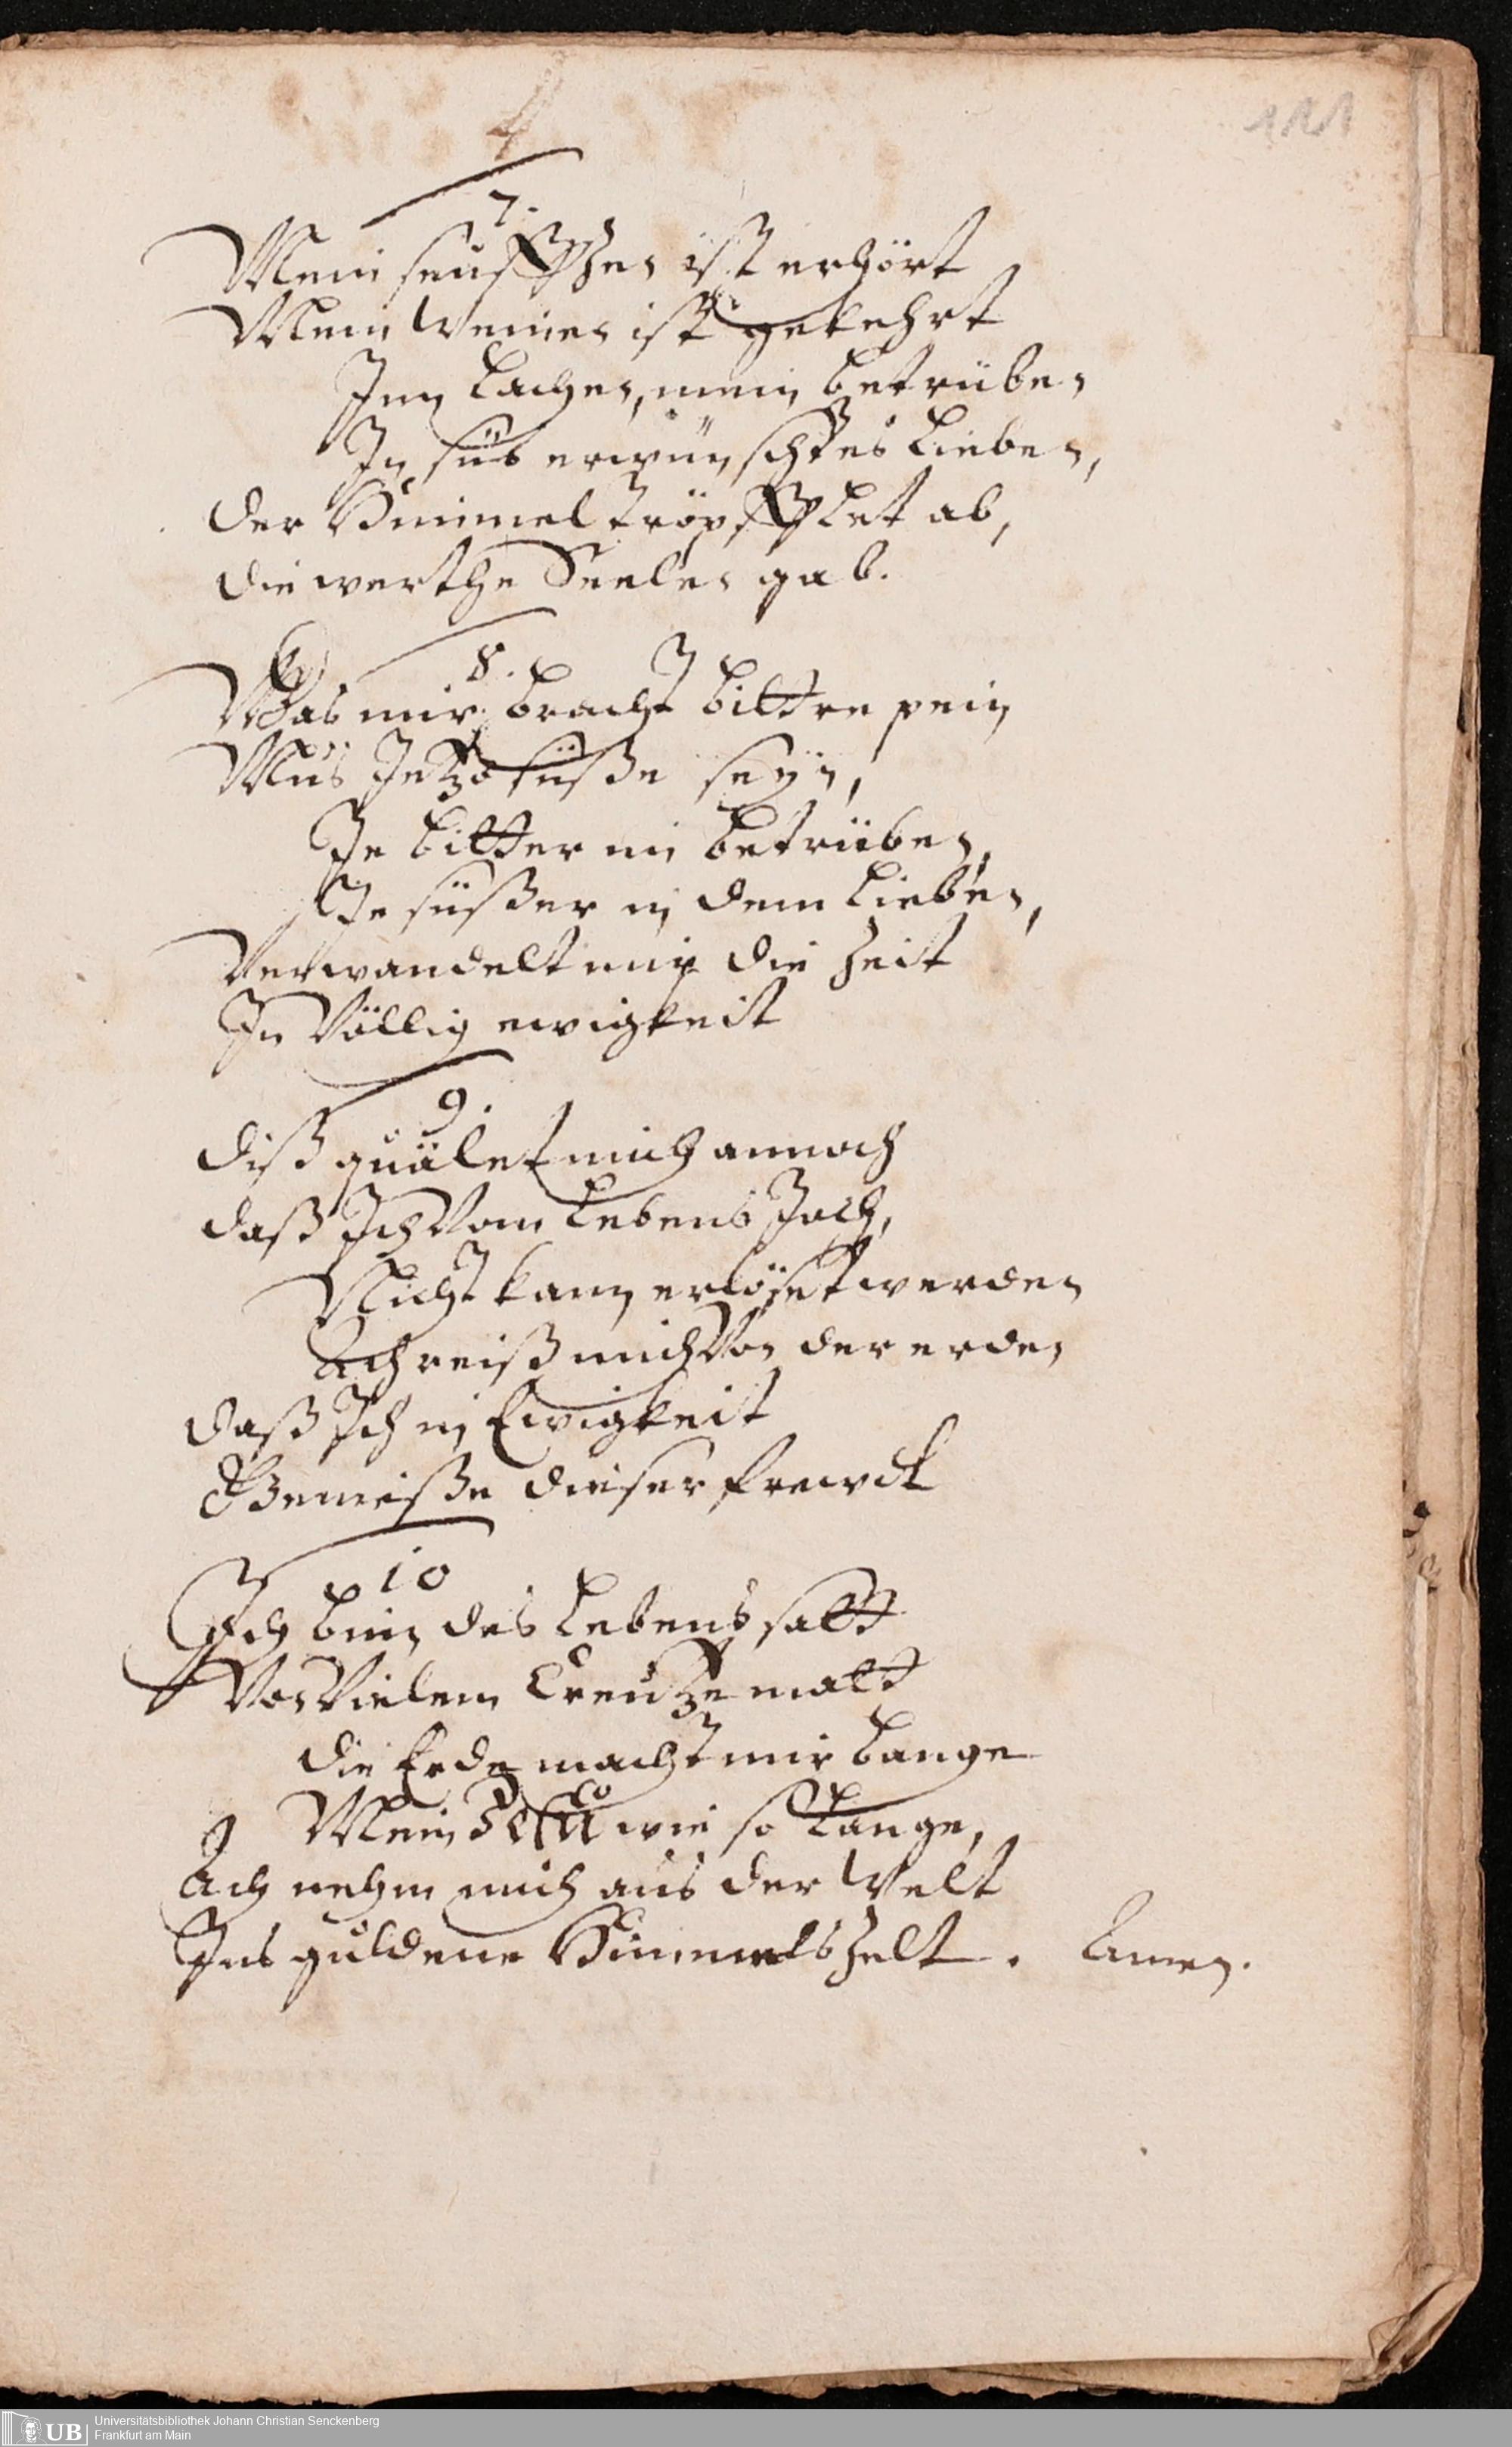 111
7.
Mein seufftzen ist erhört
Mein Weinen ist gekehrt
Inn Lachen, mein betrüben
In süs erwünschtes Lieben,
der Himmel tröpfflet ab,
die werthe Seelen gab.
8.
Was mir bracht bittre pein
Mus Jetzo süsse seyn,
Je bitter im betrüben,
Je süsser in dem Lieben,
Verwandelt mir die Zeit
In Völlig ewigkeit
9.
diß quälet mich annoch
daß Ich Vom Lebens Joch,
Nicht kann erlöset werden
Ach reiß mich Von der erden
daß Ich in Ewigkeit
Geniesse dieser frewdt
10
Ich bin des Lebens satt
Von Vielem Creutze matt
die Erde macht mir bange
Mein JESU wie so Lange,
Ach nehm mich aus der Welt
Ins guldene Himmels Zelt. Amen.
UB Universitätsbibliothek Johann Christian Senckenberg
Frankfurt am Main